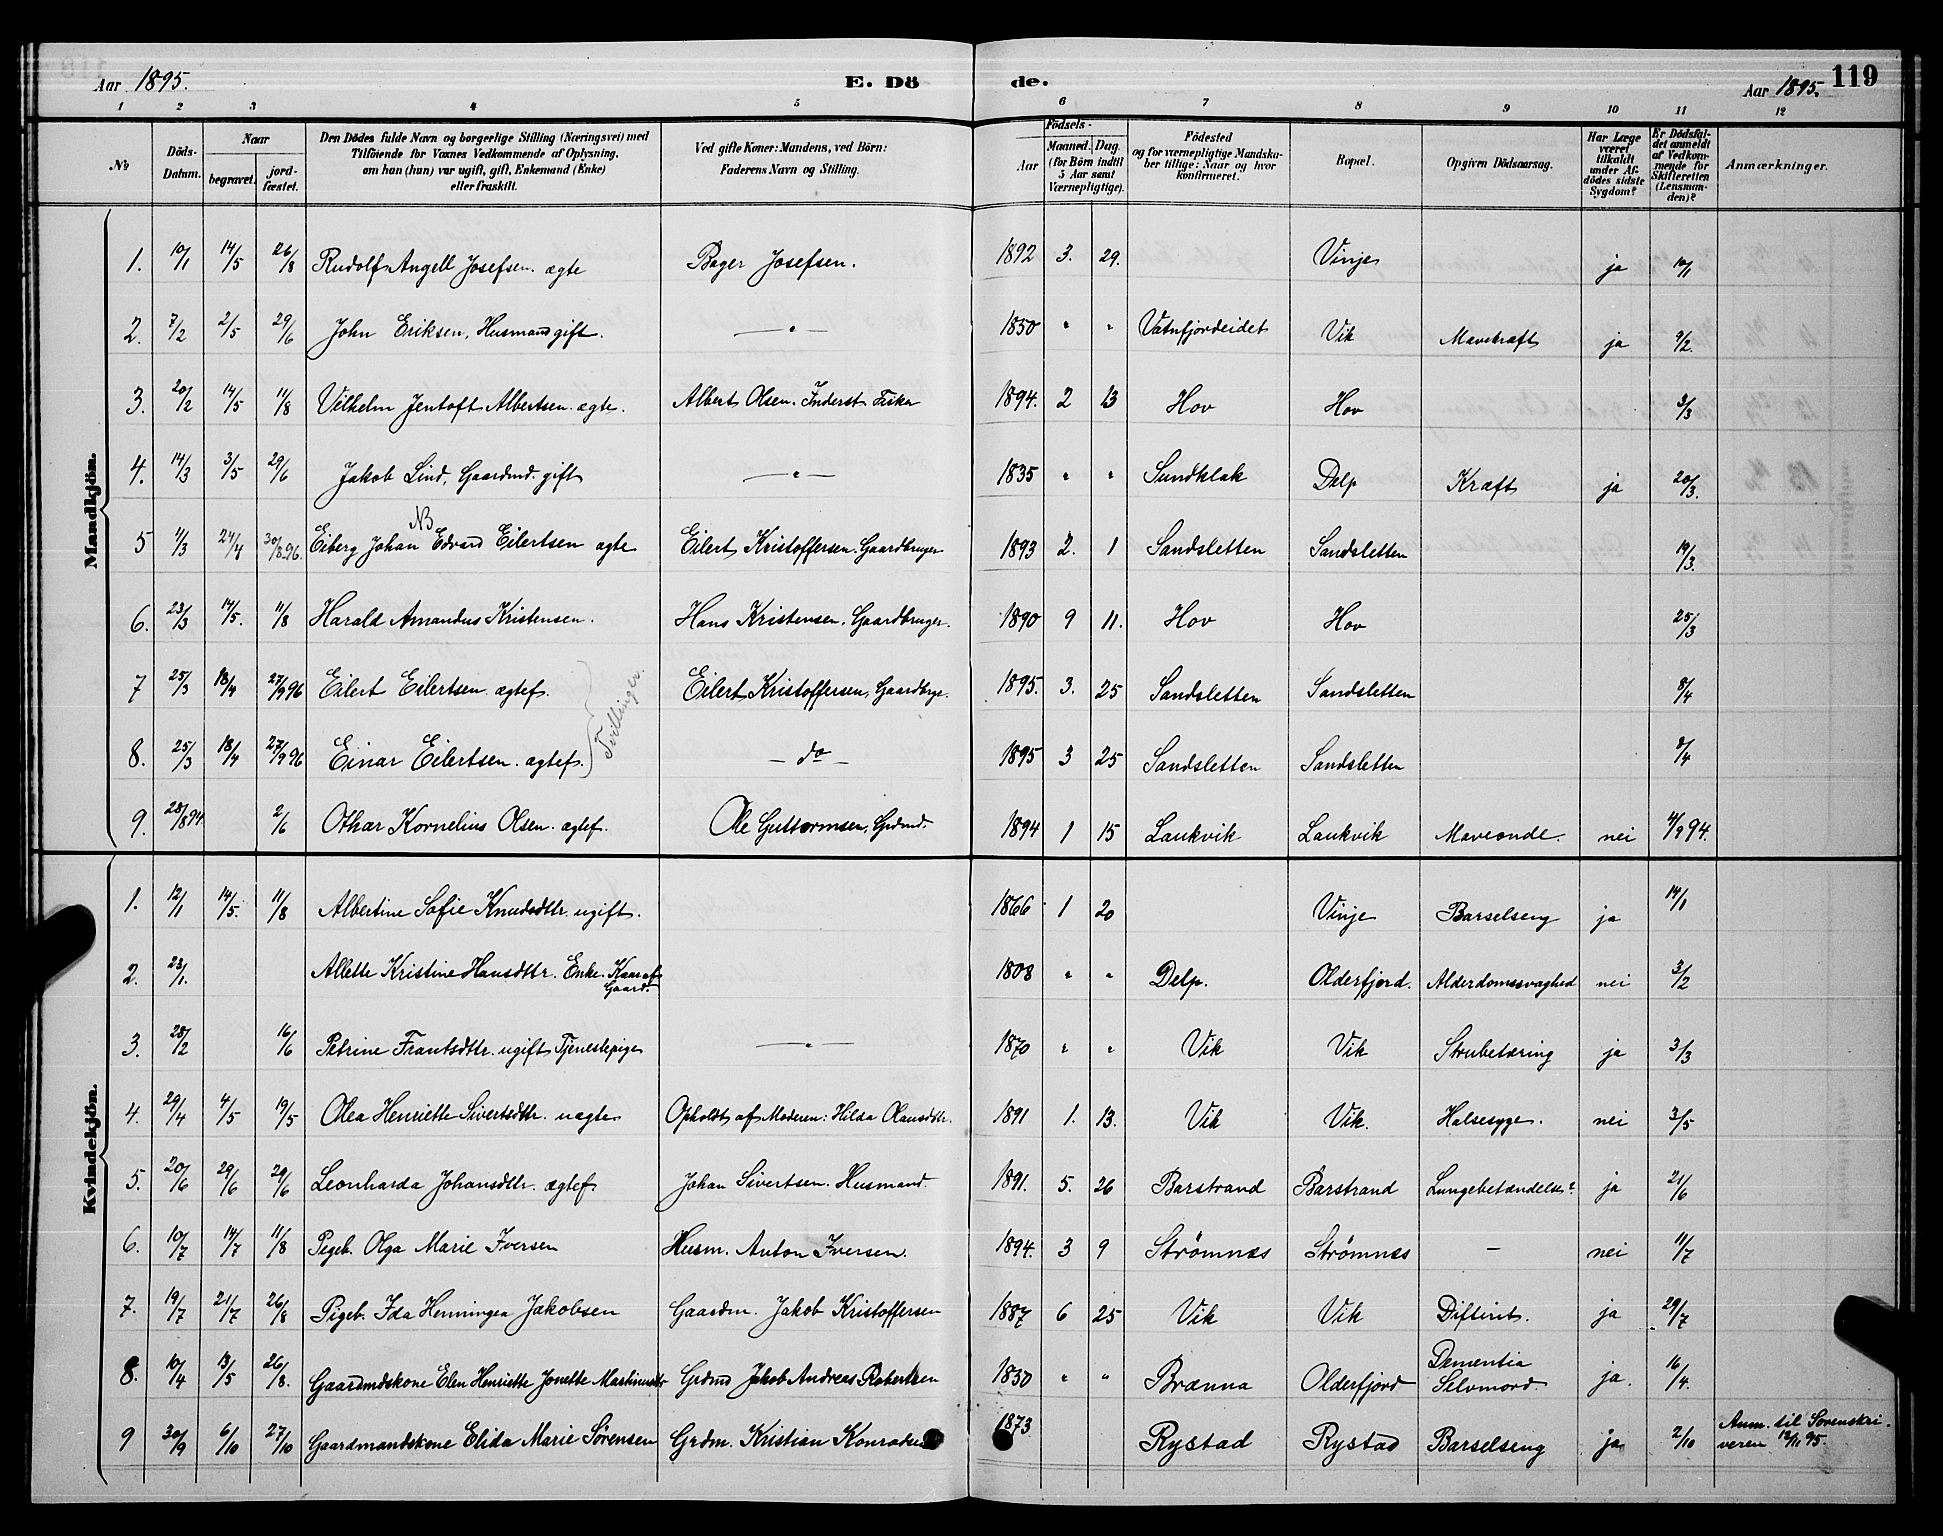 Aar 1895. E. Dö de. Aar 1895. 119
1 2 3 4 5 6 7 8 9 10 11 12
No Döds-Datum. Naar begravet. jord-fæstet. Den Dödes fulde Navn og borgerlige Stilling (Næringsvei) med Tilföiende for Voxnes Vedkommende af Oplysning, om han (hun) var ugift, gift, Enkemand (Enke) eller fraskilt. Ved gifte Koner: Mandens, ved Börn: Faderens Navn og Stilling. Födsels- Aar Maaned. Dag. (for Börn indtil 5 Aar samt Værnepligtige). Födested og for værnepligtige Mandska-ber tillige: Naar og hvor konfirmeret. Bopæl. Opgiven Dödsaarsag. Har Læge været tilkaldt under Af-dödes sidste Sygdom? Er Dödsfal-det anmeldt af Vedkom-mende for Skifteretten (Lensman-den)? Anmærkninger.
Mandkjön.
1. 10/1 14/5 26/8 Rudolf Angell Josefsen. ægte Bager Josefsen. 1892 3. 29. Vinje ja 10/1
2. 7/2 2/5 29/6 John Eriksen, Husmand gift. — " — 1850 " " Vatnfjordeidet Vik Mavekræft ja 9/2.
3. 20/2 14/5 11/8 Vilhelm Jentoft Albertsen ægte. Albert Olsen. Inderst Fisker 1894. 2 13 Hov Hov 3/3
4. 14/3 3/5 29/6 Jakob Lind, Gaardmd. gift — " — 1835 " " Sundklak Delp Kræft ja 20/3.
NB
5 11/3 24/4 30/8.96. Eiberg Johan Edvard Eilertsen ægte Eilert Kristoffersen. Gaardbruger 1893 2. 1 Sandsletten Sandsletten 19/3.
6. 23/3 14/5. 11/8 Harald Amandus Kristensen. Hans Kristensen. Gaardbruger. 1890 9 11. Hov Hov 25/3
7 25/3 18/4 27/9 96 Eilert Eilertsen ægtef. Eilert Kristoffersen, Gaardbrge. 1895. 3. 25 Sandsletten Sandsletten 8/4
Tvillinger.
8. 25/3 18/4 27/9 96 Einar Eilertsen. ægtef. — do — 1895 3 25 Sandsletten Sandsletten 8/4
9. 28/8 94. 2/6 Othar Kornelius Olsen. ægtef. Ole Guttormsen, Grdmd. 1894 1 15 Laukvik Laukvik Maveonde. nei 4/9 94.
Kvindekjön.
1. 12/1 14/5. 11/8 Albertine Sofie Knudsdttr. ugift. 1866 1 20 Vinje Barselseng ja 14/1
2. 23/1. Allette Kristine Hansdttr. Enke. Kaar af 1808 " " Delp. Olderfjord. Alderdomssvaghed nei 3/2
Gaard.
3. 28/2 16/6 Petrine Frantsdttr. ugift Tjenestepige — " — 1870 " " Vik Vik Strubetæring ja 3/3
4. 29/4 4/5 19/5 Olea Henriette Sivertsdttr. uægte Opholdt af Moderen: Hilda Olausdttr. 1891 1. 13. Vik Vik. Halsesyge. nei 3/5
5. 20/6 29/6 29/6 Leonharda Johansdttr. ægtef. Johan Sivertsen. Husmand. 1891. 5. 26 Barstrand Barstrand Lungebetændelse? ja 21/6
6. 10/7 14/7 11/8 Pigeb. Olga Marie Iversen Husm. Anton Iversen. 1894. 3 9 Strømnæs Strømnæs — nei 11/7
7. 19/7 21/7 26/8 Pigeb. Ida Henningea Jakobsen Gaardm. Jakob Kristoffersen 1887 6 25 Vik Vik Difterit. ja 29/7
8. 10/4 13/5 26/8. Gaardmdskone Elen Henriette Jonette Martinusdtr Grdmd Jakob Andreas Robertsen 1850 " " Brænna Olderfjord Dementia ja. 16/4.
Selvmord.
9 30/9 6/10 27/10 Gaardmandskone Elida Marie Sørensen Grdm. Kristian Konradsen 1873 Rystad Rystad Barselseng ja 2/10 Anm. til Sorenskri-
veren 12/11 95.